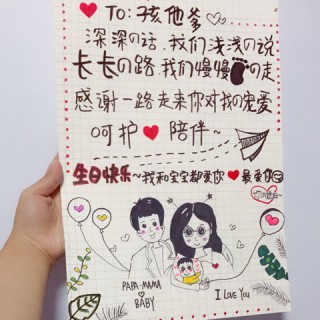 To:孩他爹
深深の话，我们浅浅の说
长长の路，我们慢慢の走
感谢一路走来你对我の宠爱
呵护 陪伴~
生日快乐~我和宝宝都爱你 最爱你
PAPA·MAMA
BABY
I Love You